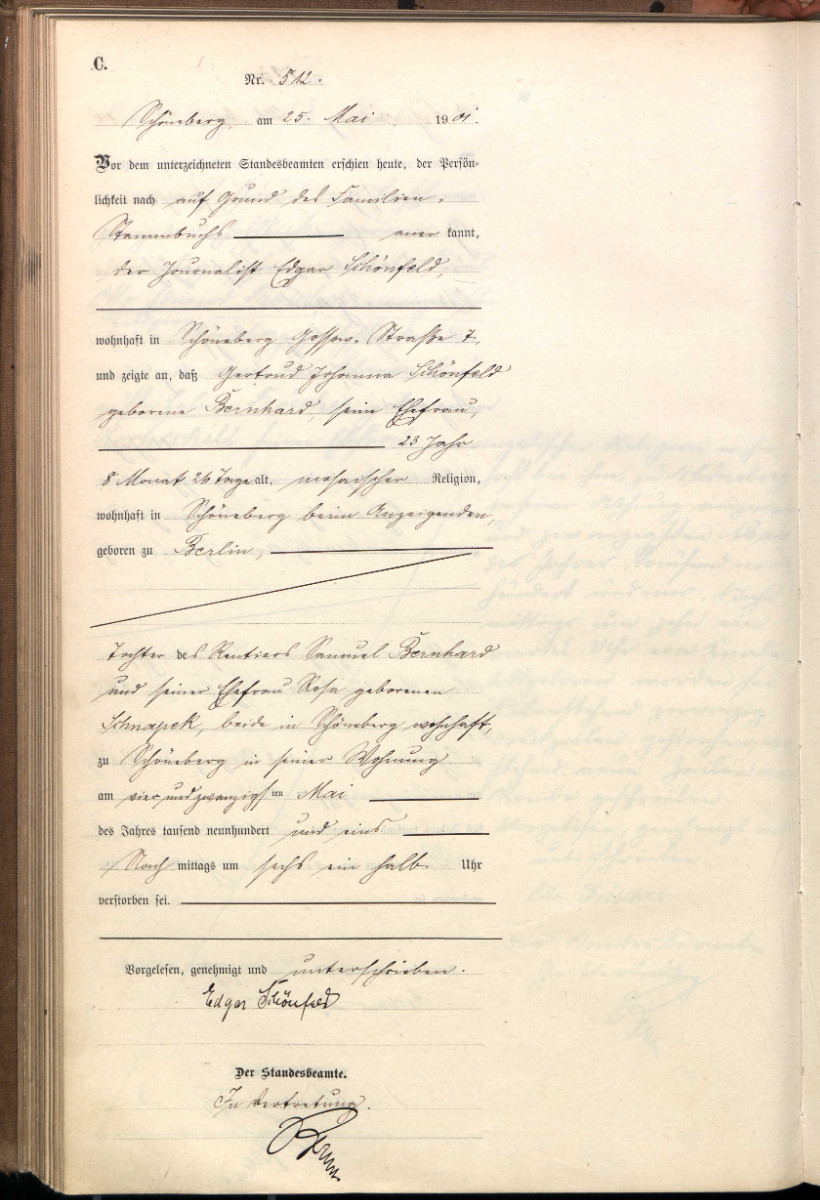 C.
Nr. 512.
Schöneberg, am 25. Mai 1901.
Vor dem unterzeichneten Standesbeamten erschien heute, der Persön-
lichkeit nach auf Grund des Familien-
Stammbuchs anerkannt,
der Journalist Edgar Schönfeld,
wohnhaft in Schöneberg Gossow-Straße 7
und zeigte an, daß Gertrud Johanna Schönfeld
geborene Bernhard, seine Ehefrau,
23 Jahr
8 Monat 26 Tage alt, mosaischer Religion,
wohnhaft in Schöneberg beim Anzeigenden,
geboren zu Berlin,
Tochter des Rentiers Samuel Bernhard
und seiner Ehefrau Rosa geborenen
Schnapek, beide in Schöneberg wohnhaft,
zu Schöneberg in seiner Wohnung
am vierundzwanzigsten Mai
des Jahres tausend neunhundert und eins
Nachmittags um sechs ein halb Uhr
verstorben sei.
Vorgelesen, genehmigt und unterschrieben.
Edgar Schönfeld
Der Standesbeamte.
In Vertretung.